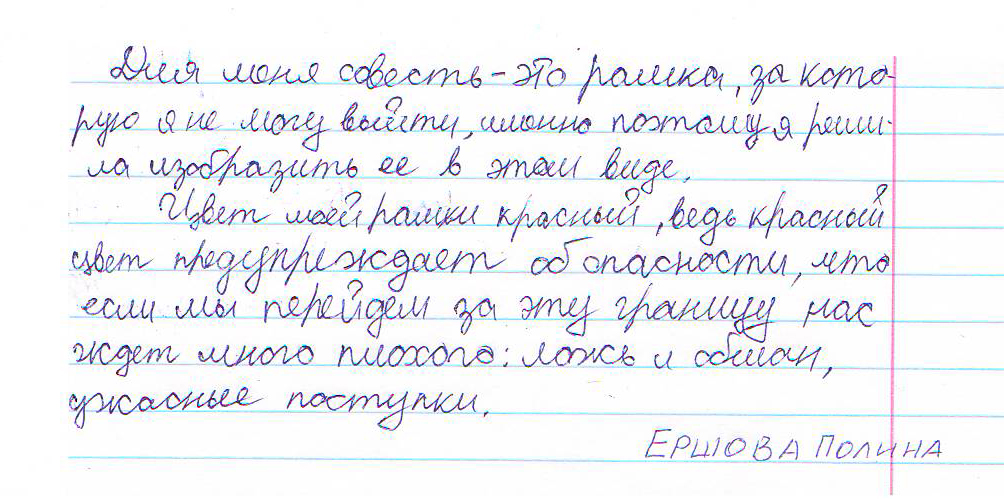 Для меня совесть - это рамка, за кото-
рую я не могу выйти, именно поэтому я реши-
ла изобразить ее в этом виде.
Цвет моей рамки красный, ведь красный
цвет предупреждает об опасности, что
если мы перейдем за эту границу нас
ждет много плохого: ложь и обман,
ужасные поступки.
ЕРШОВА ПОЛИНА